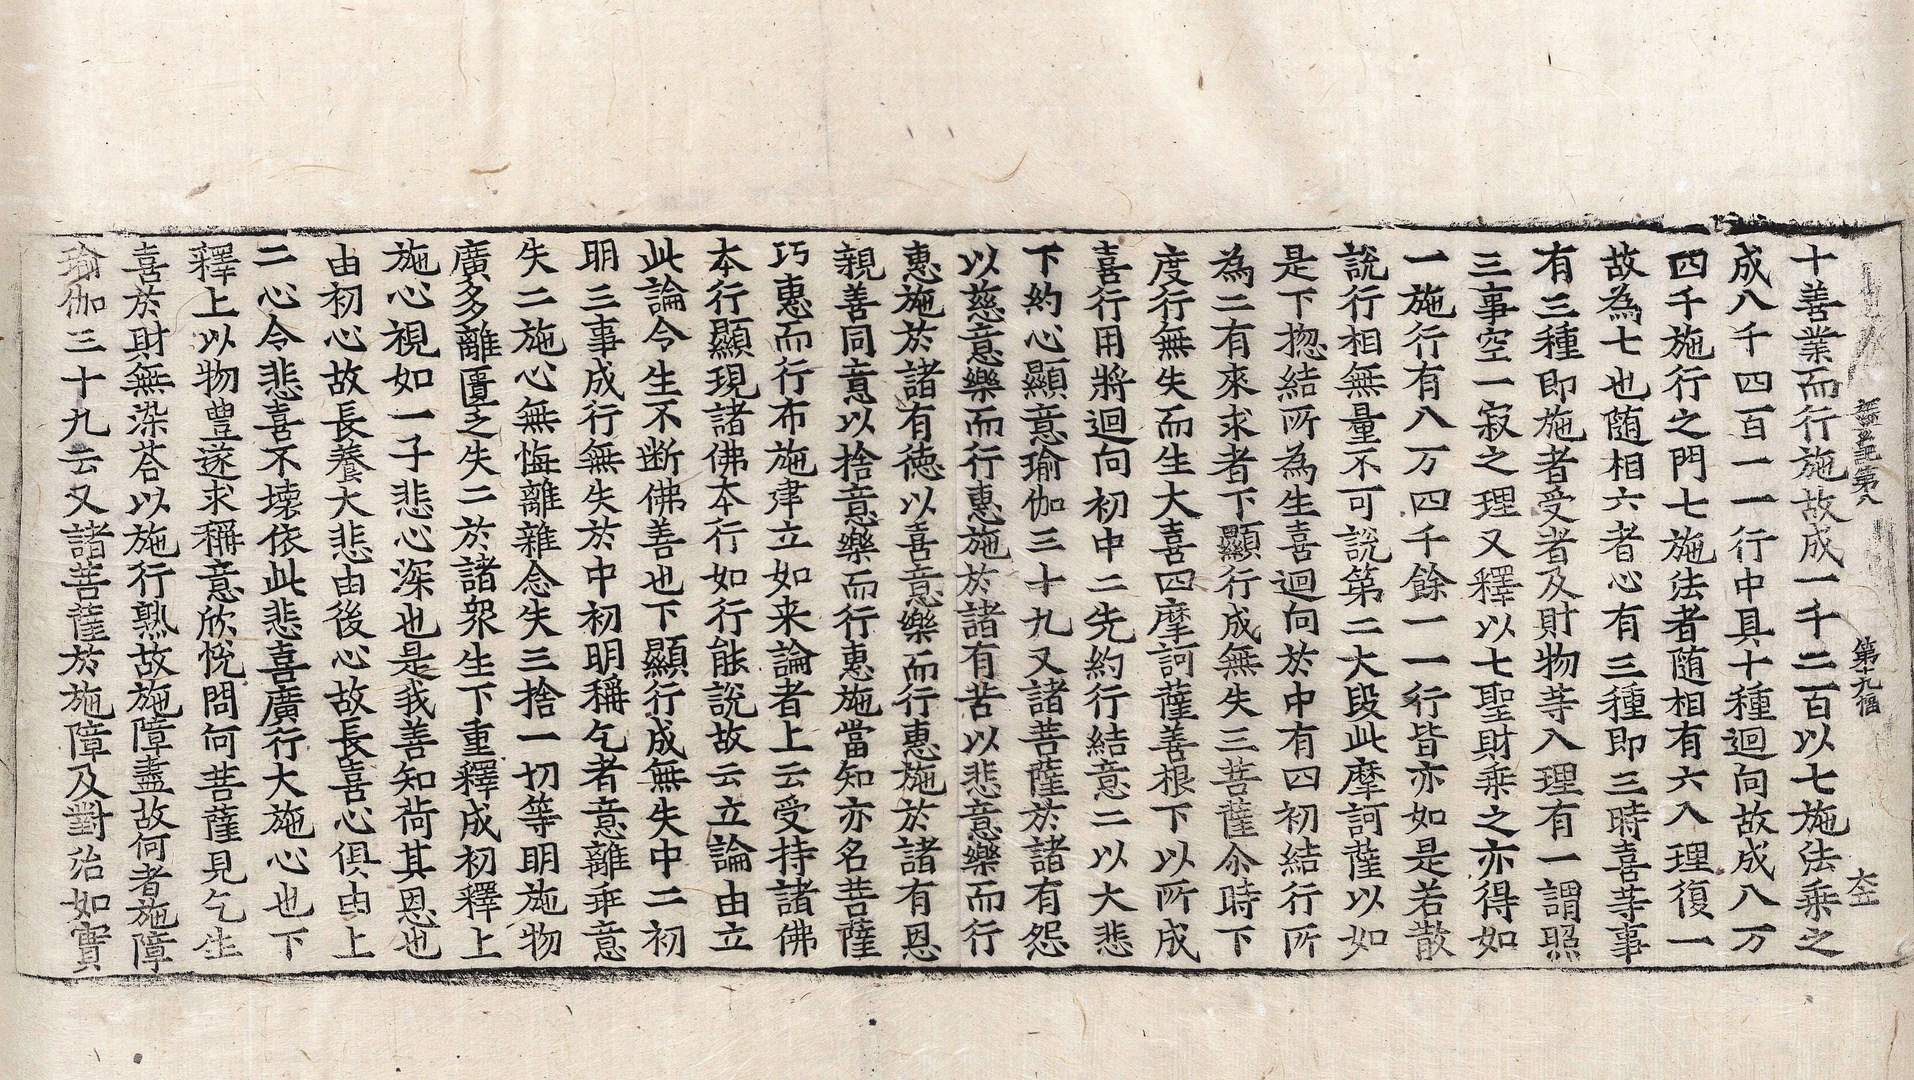 記第八 第十九幅 大
十善業而行施故成一千二百以七施法乘之
成八千四百一一行中具十種迴向故成八万
四千施行之門七施法者随相有六入理復一
故為七也随相六者心有三種即三時喜䓁事
有三種即施者受者及財物䓁入理有一謂照
三事空一寂之理又釋以七聖財乘之亦得如
一施行有八万四千餘一一行皆亦如是若散
說行相無量不可說第二大段此摩訶薩以如
是下揔結所為生喜迴向於中有四初結行所
為二有來求者下顯行成無失三菩薩尒時下
度行無失而生大喜四摩訶薩善根下以所成
喜行用將迴向初中二先約行結意二以大悲
下約心顯意瑜伽三十九又諸菩薩於諸有怨
以慈意樂而行惠施於諸有苦以悲意樂而行
惠施於諸有德以喜意樂而行惠施於諸有恩
親善同意以捨意樂而行惠施當知亦名菩薩
巧惠而行布施建立如来論者上云受持諸佛
本行顯現諸佛本行如行能說故云立論由立
此論令生不断佛善也下顯行成無失中二初
明三事成行無失於中初明稱乞者意離乖意
失二施心無悔離雜念失三捨一切等明施物
廣多離匱乏失二於諸衆生下重釋成初釋上
施心視如一子悲心深也是我善知荷其恩也
由初心故長養大悲由後心故長喜心俱由上
二心令悲喜不壊依此悲喜廣行大施心也下
釋上以物豊遂求稱意欣悅問何菩薩見乞生
喜於財無染荅以施行熟故施障盡故何者施障
瑜伽三十九云又諸菩薩於施障及對治如實